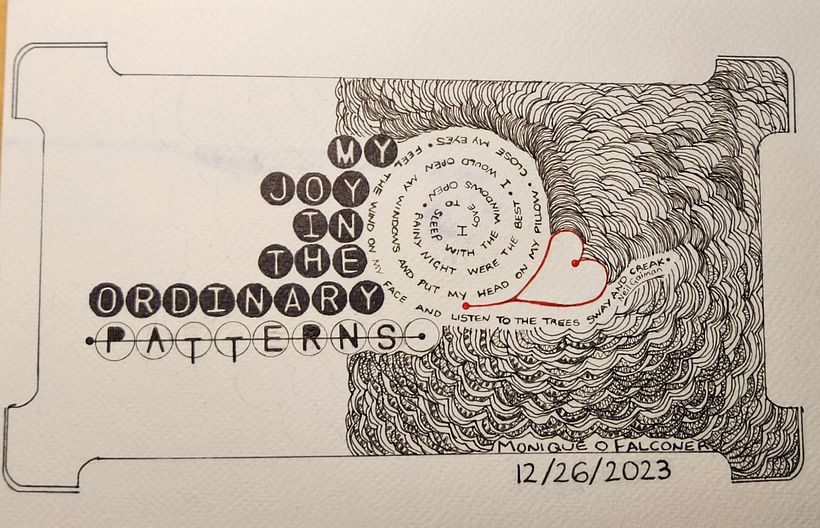 MY
JOY
IN
THE
ORDINARY
PATTERNS
I LOVE TO SLEEP WITH THE WINDOWS OPEN • RAINY NIGHT WERE THE BEST • I WOULD OPEN MY WINDOWS AND PUT MY HEAD ON MY PILLOW • CLOSE MY EYES • FEEL THE WIND ON MY FACE AND LISTEN TO THE TREES SWAY AND CREAK •
Neil Gaiman
MONIQUE O FALCONER
12/26/2023